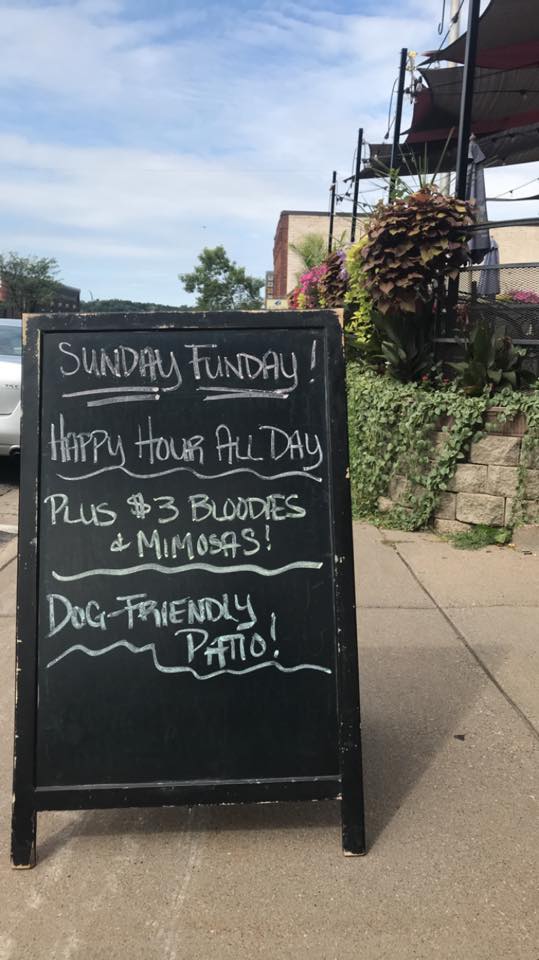 SUNDAY FUNDAY!
HAPPY HOUR ALL DAY
PLUS $3 BLOODIES
& MIMOSAS!
DOG-FRIENDLY
PATIO!